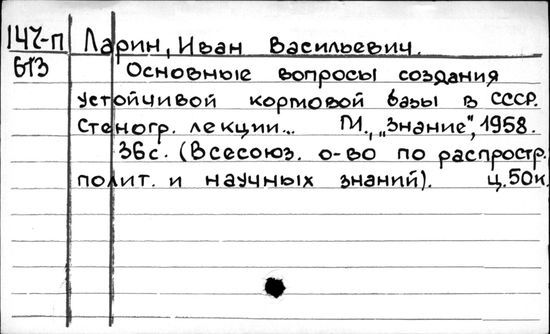 147-п Ларин, Иван Васильевич.
613 Основные вопросы создания
устойчивой кормовой базы в СССР.
Стеногр. лекции... М., „Знание", 1958.
36с. (Всесоюз. о-во по распростр.
полит. и научных знаний). ц.50к.